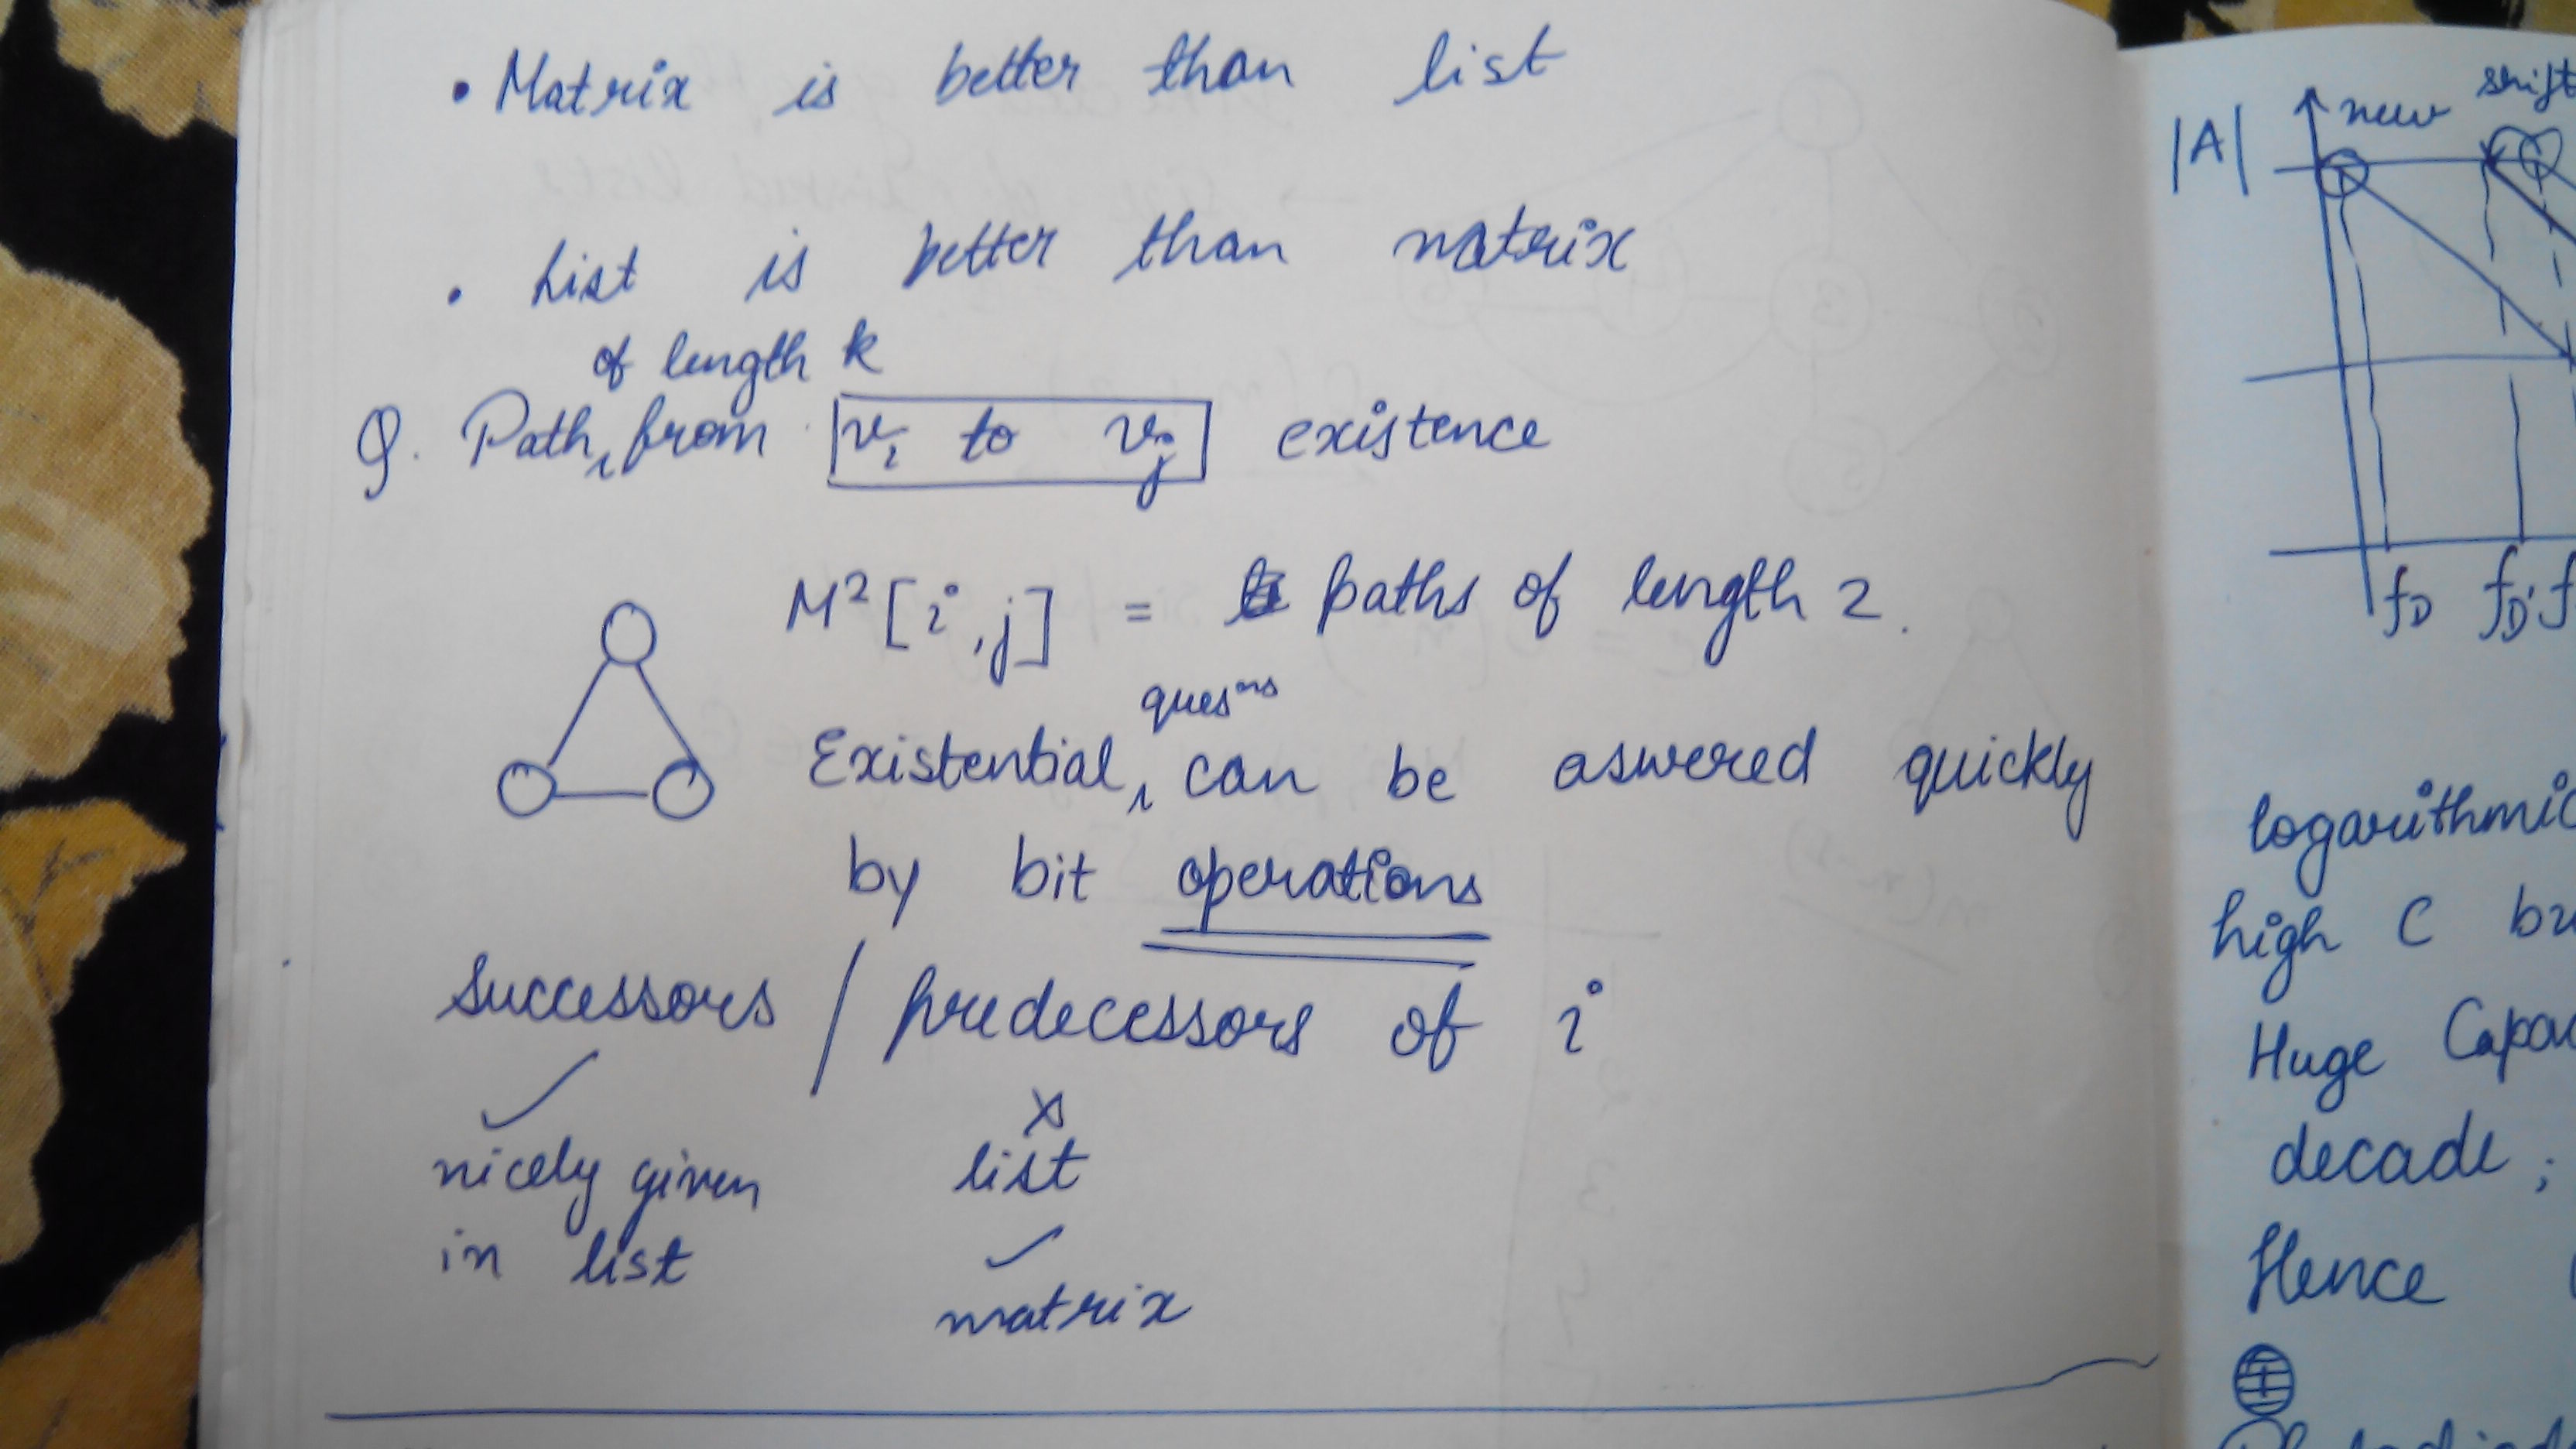 • Matrix is better than list
• List is better than matrix
of length k
Q. Path, from vi to vj existence
M²[i,j] = paths of length 2.
quesⁿˢ
Existential, can be aswered quickly
by bit operations
successors / predecessors of i
✓ x
nicely given list
in list ✓
matrix
|A| new shift
fD fD' f
logarithmic
high C
Huge
decade ;
Hence